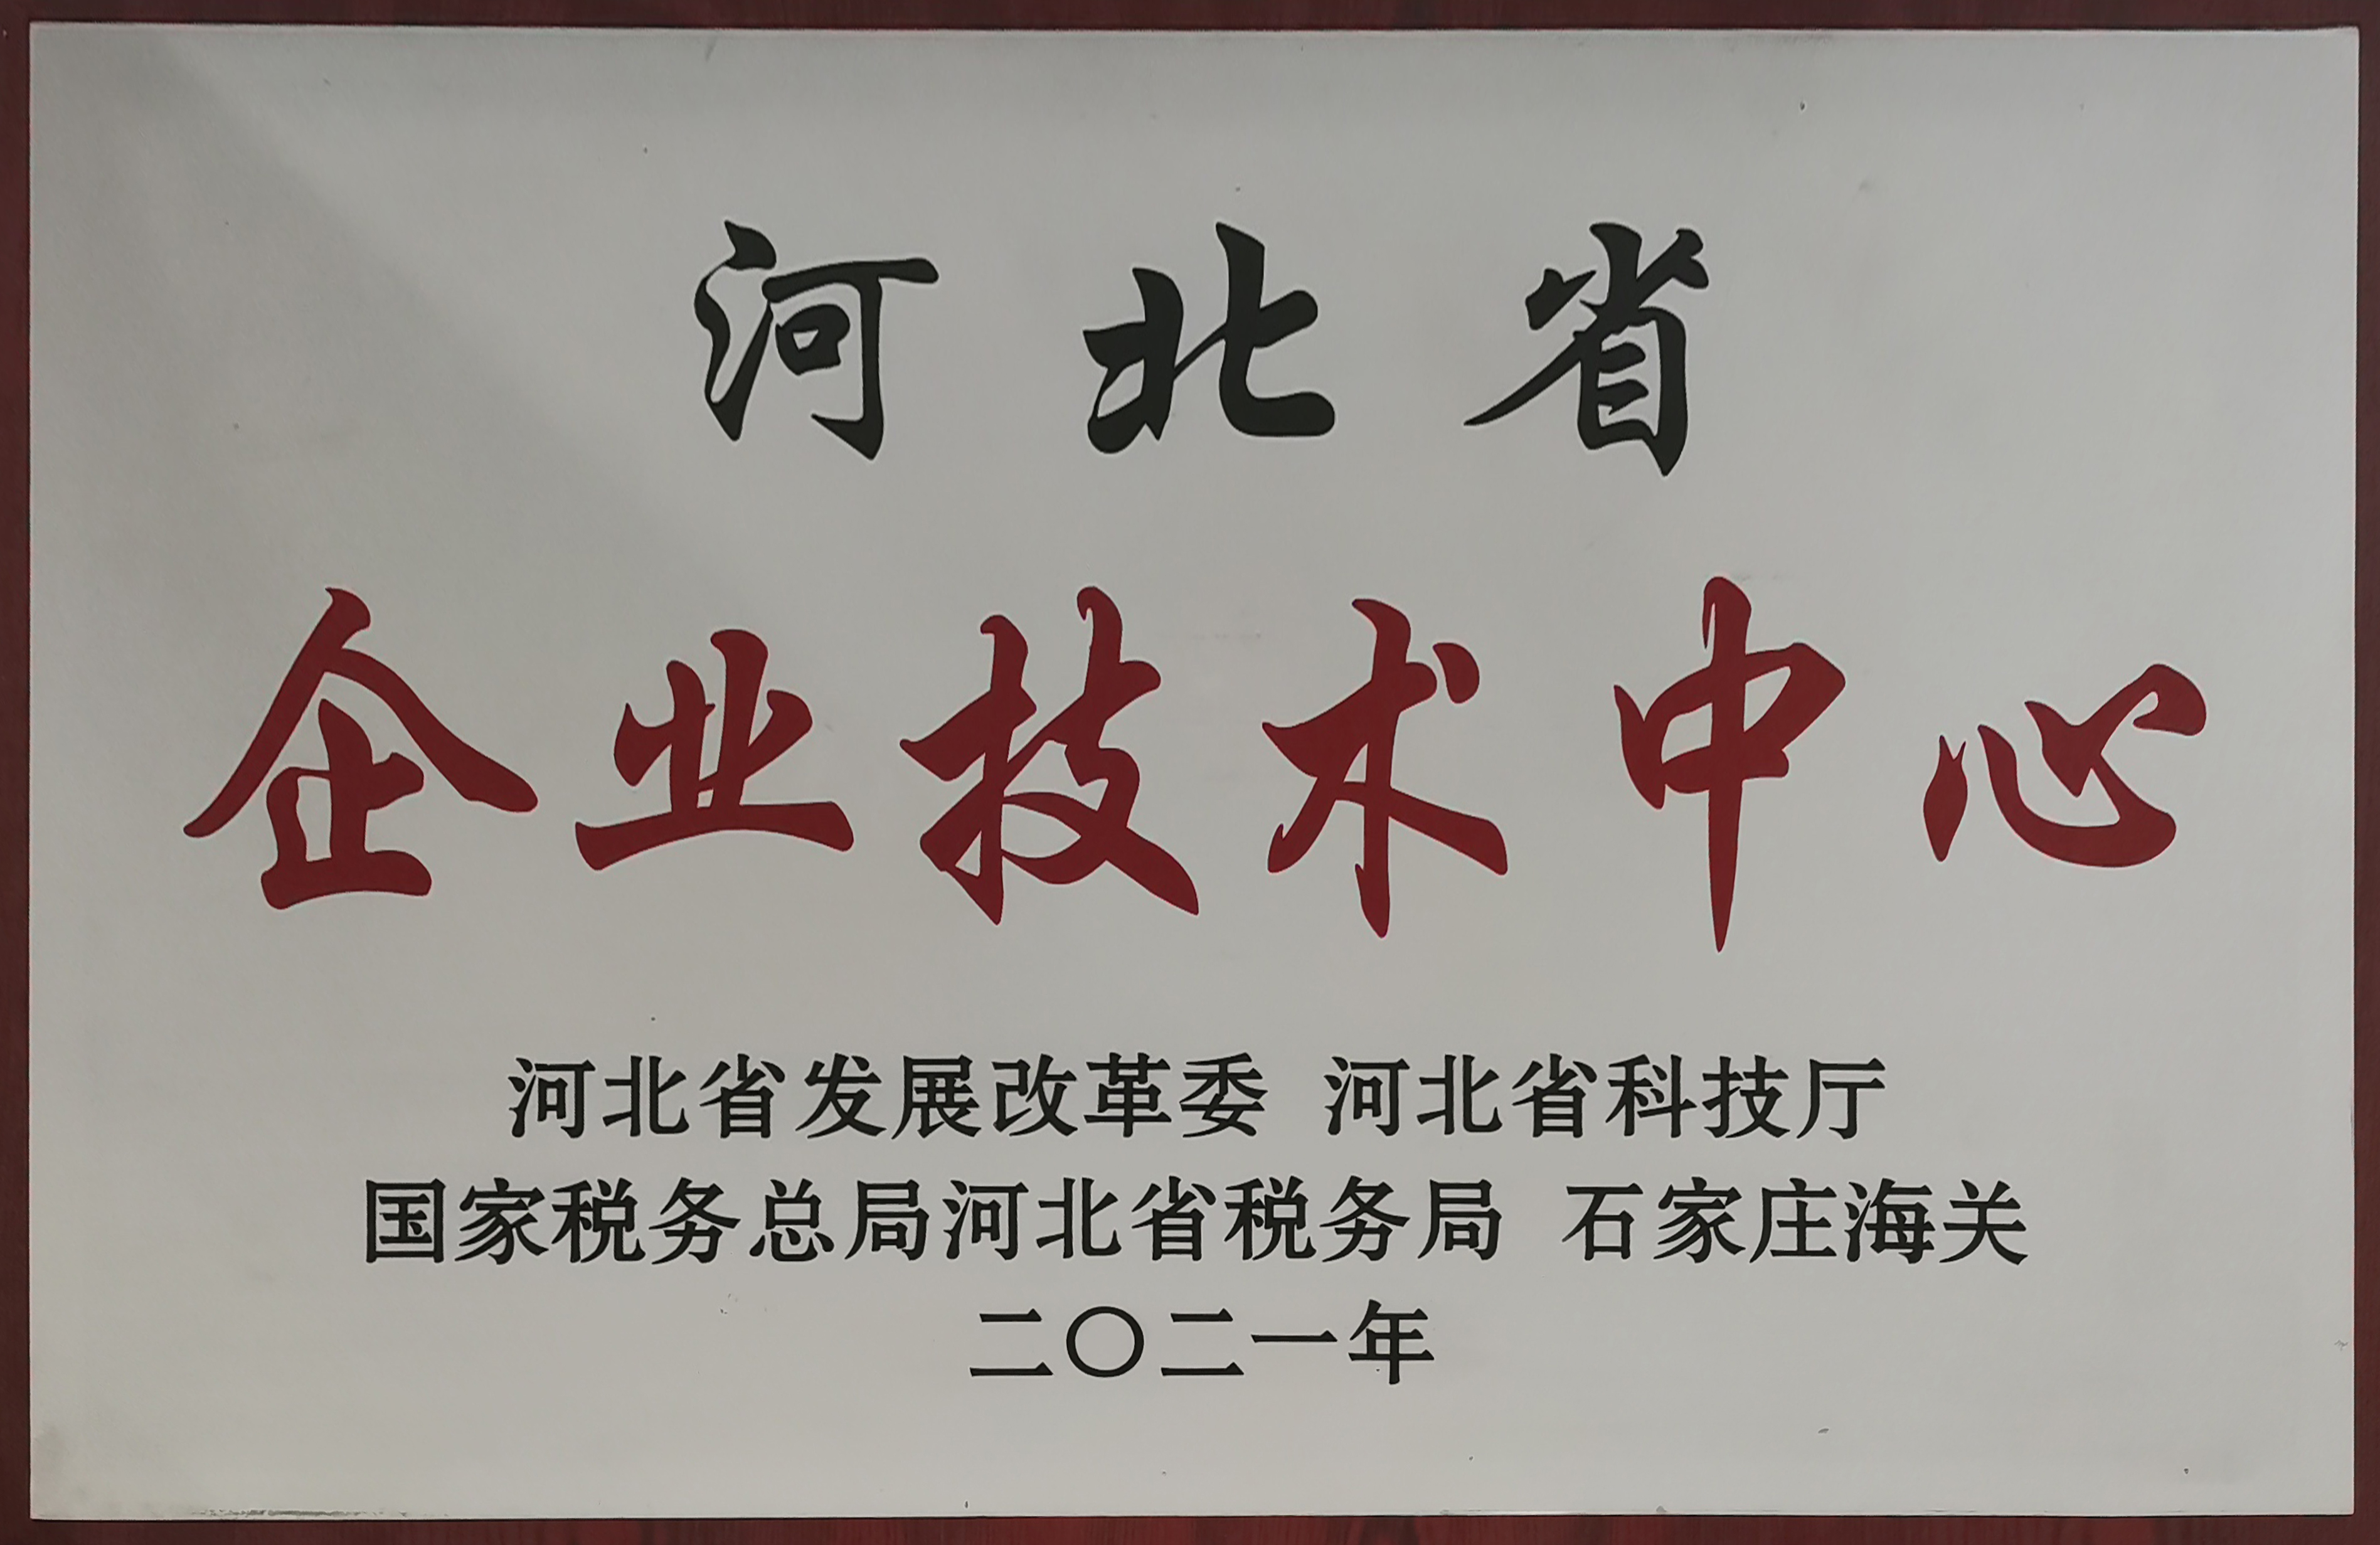 河北省
企业技术中心
河北省发展改革委 河北省科技厅
国家税务总局河北省税务局 石家庄海关
二〇二一年